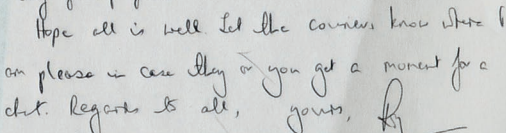 Hope all is well. Let the couriers know where I
am please in case they or you get a moment for a
chat. Regards to all, yours,